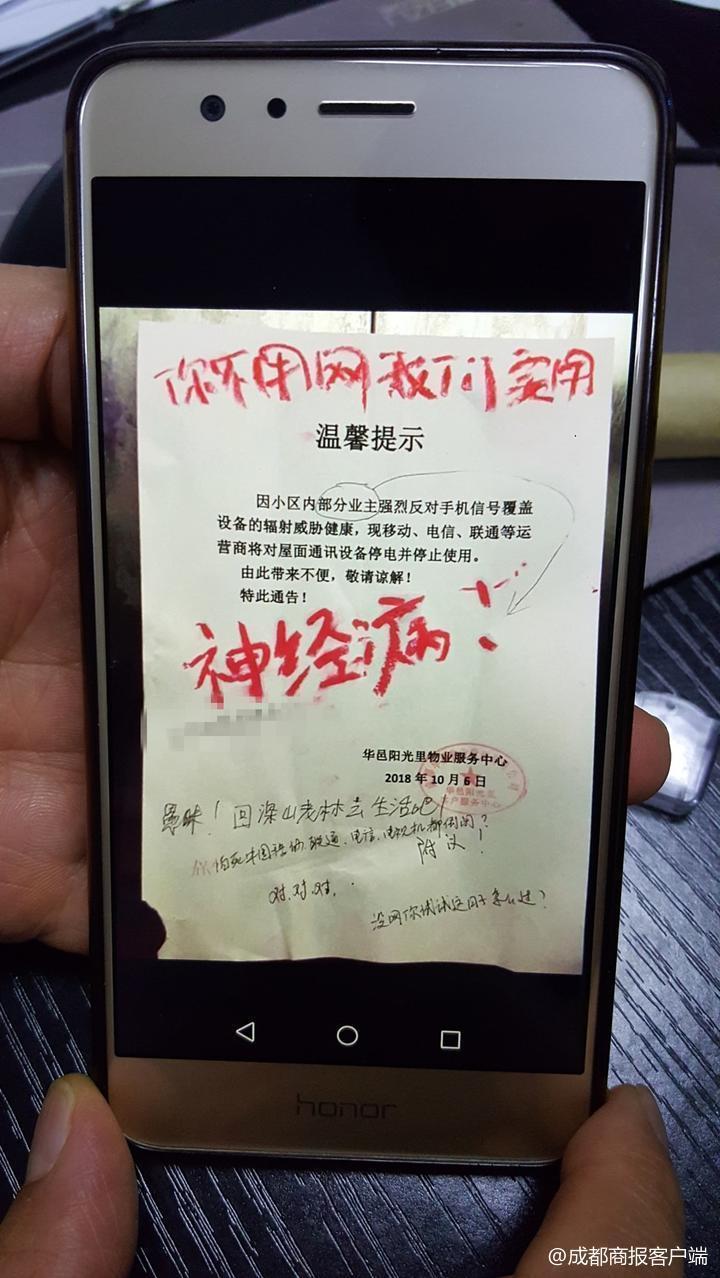 你不用网我们要用
温馨提示
因小区内部分业主强烈反对手机信号覆盖
设备的辐射威胁健康，现移动、电信、联通等运
营商将对屋面通讯设备停电并停止使用。
由此带来不便，敬请谅解！
特此通告！
神经病！
华邑阳光里物业服务中心
2018年10月6日
客户服务中心
愚昧！回深山老林去生活吧！
怕死中国移动、联通、电信、电视机都倒闭？
附议！
对.对.对.
没网你试试这日子怎么过？
honor
@成都商报客户端